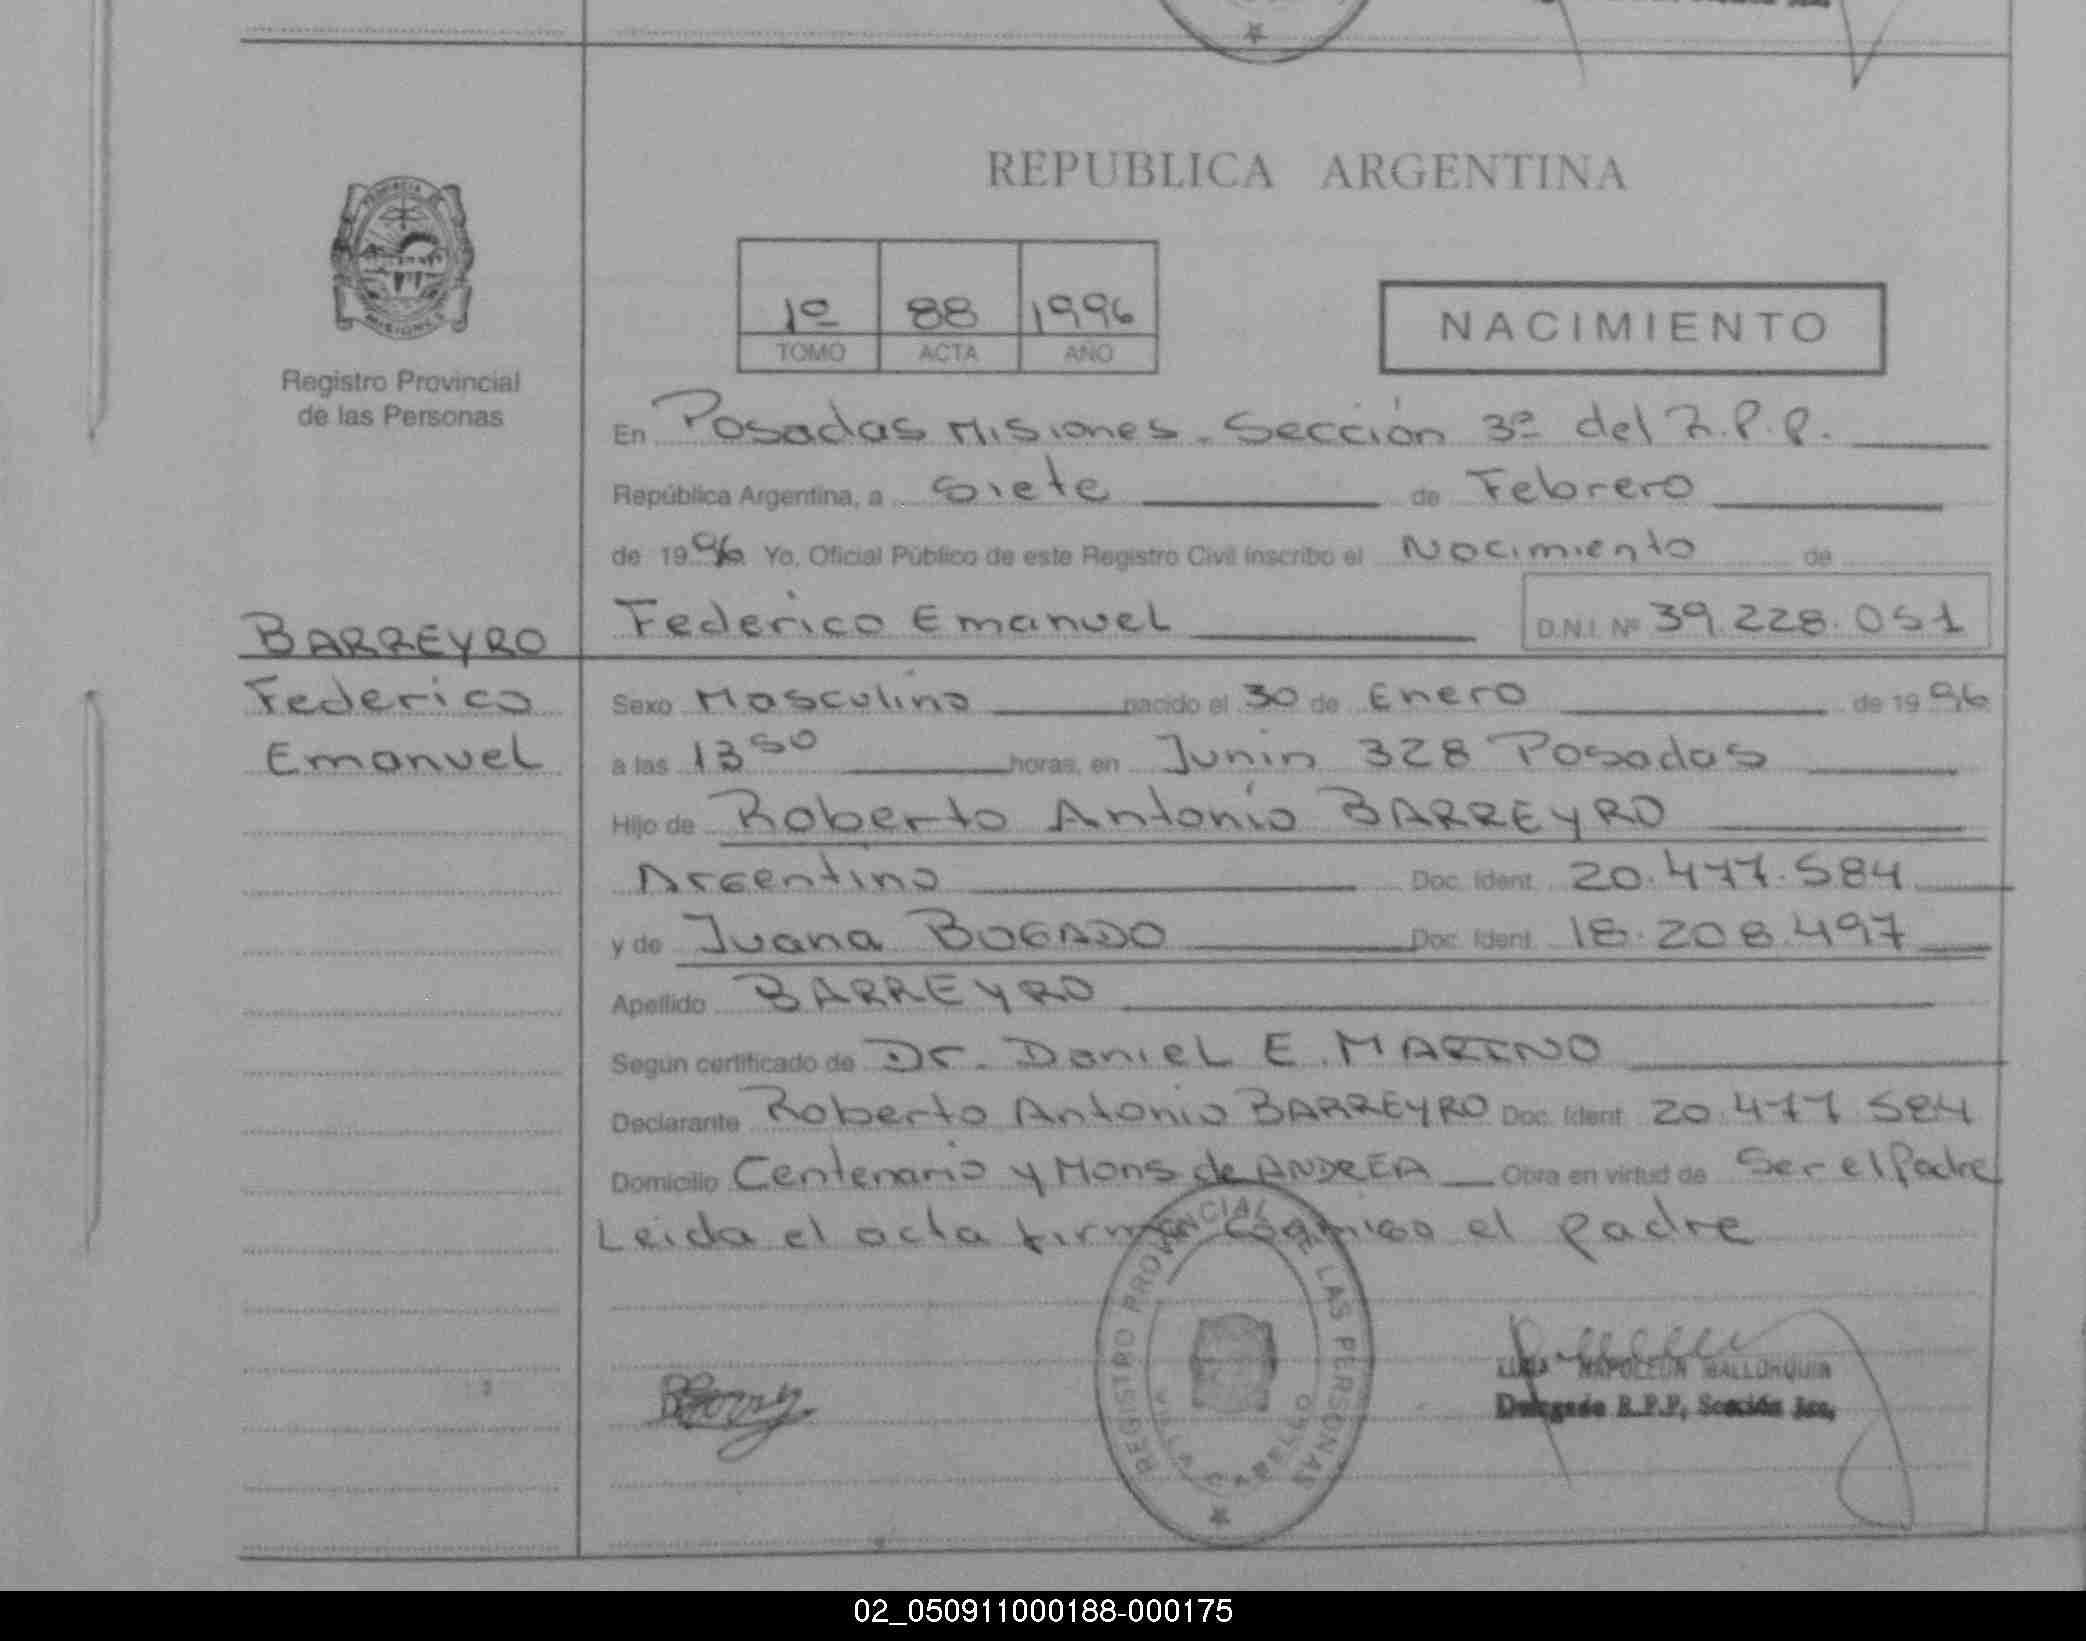 REPUBLICA ARGENTINA
PROVINCIA DE
MISIONES
Registro Provincial
de las Personas
1º 88 1996
TOMO ACTA AÑO
NACIMIENTO
En Posadas Misiones. Sección 3ª del R.P.P.
República Argentina, a Siete de Febrero
de 1996 Yo, Oficial Público de este Registro Civil inscribo el Nacimiento de
BARREYRO
Federico
Emanuel
Federico Emanuel D.N.I. Nº 39.228.051
Sexo Masculino nacido el 30 de Enero de 1996
a las 13 50 horas, en Junin 328 Posadas
Hijo de Roberto Antonio BARREYRO
Argentino Doc. Ident. 20.477.584
y de Juana BOGADO Doc. Ident. 18.208.497
Apellido BARREYRO
Según certificado de Dr. Daniel E. MARINO
Declarante Roberto Antonio BARREYRO Doc. Ident. 20.477.584
Domicilio Centenario y Mons de ANDREA Obra en virtud de Ser el Padre
Leida el acta firma conmigo el padre
REGISTRO PROVINCIAL DE LAS PERSONAS
VILLA CABELLO
NAPOLEON MALLORQUIN
Delegado R.P.P. Sección 3ra.
02_050911000188-000175